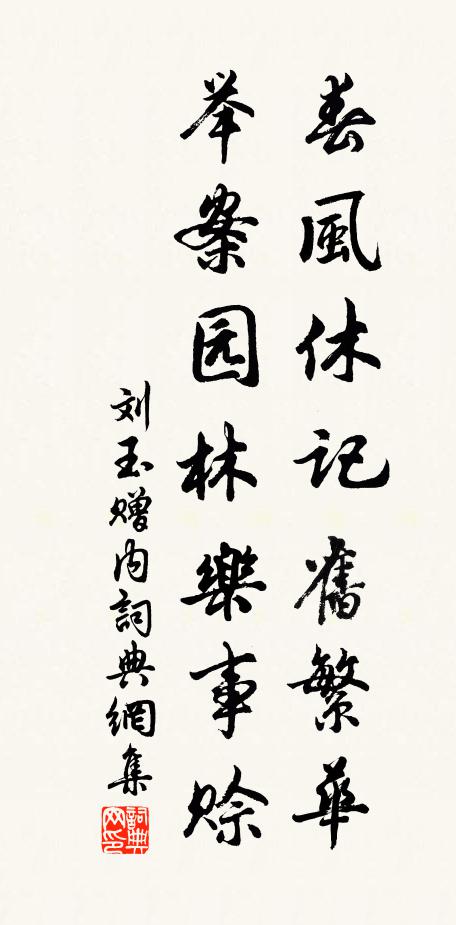 春風休记舊繁華
举案园林樂事赊
刘玉赠内詞典網集
詞典网印